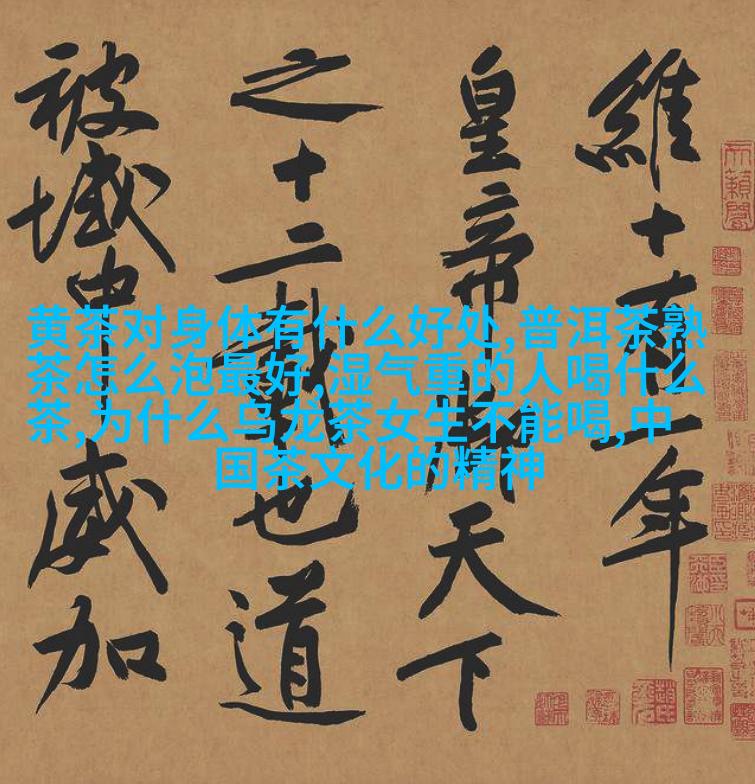 維十有一年
皇帝御天下
之十二載也道
被域中威加
黄茶对身体有什么好处,普洱茶熟
茶怎么泡最好,湿气重的人喝什么
茶,为什么乌龙茶女生不能喝,中
国茶文化的精神